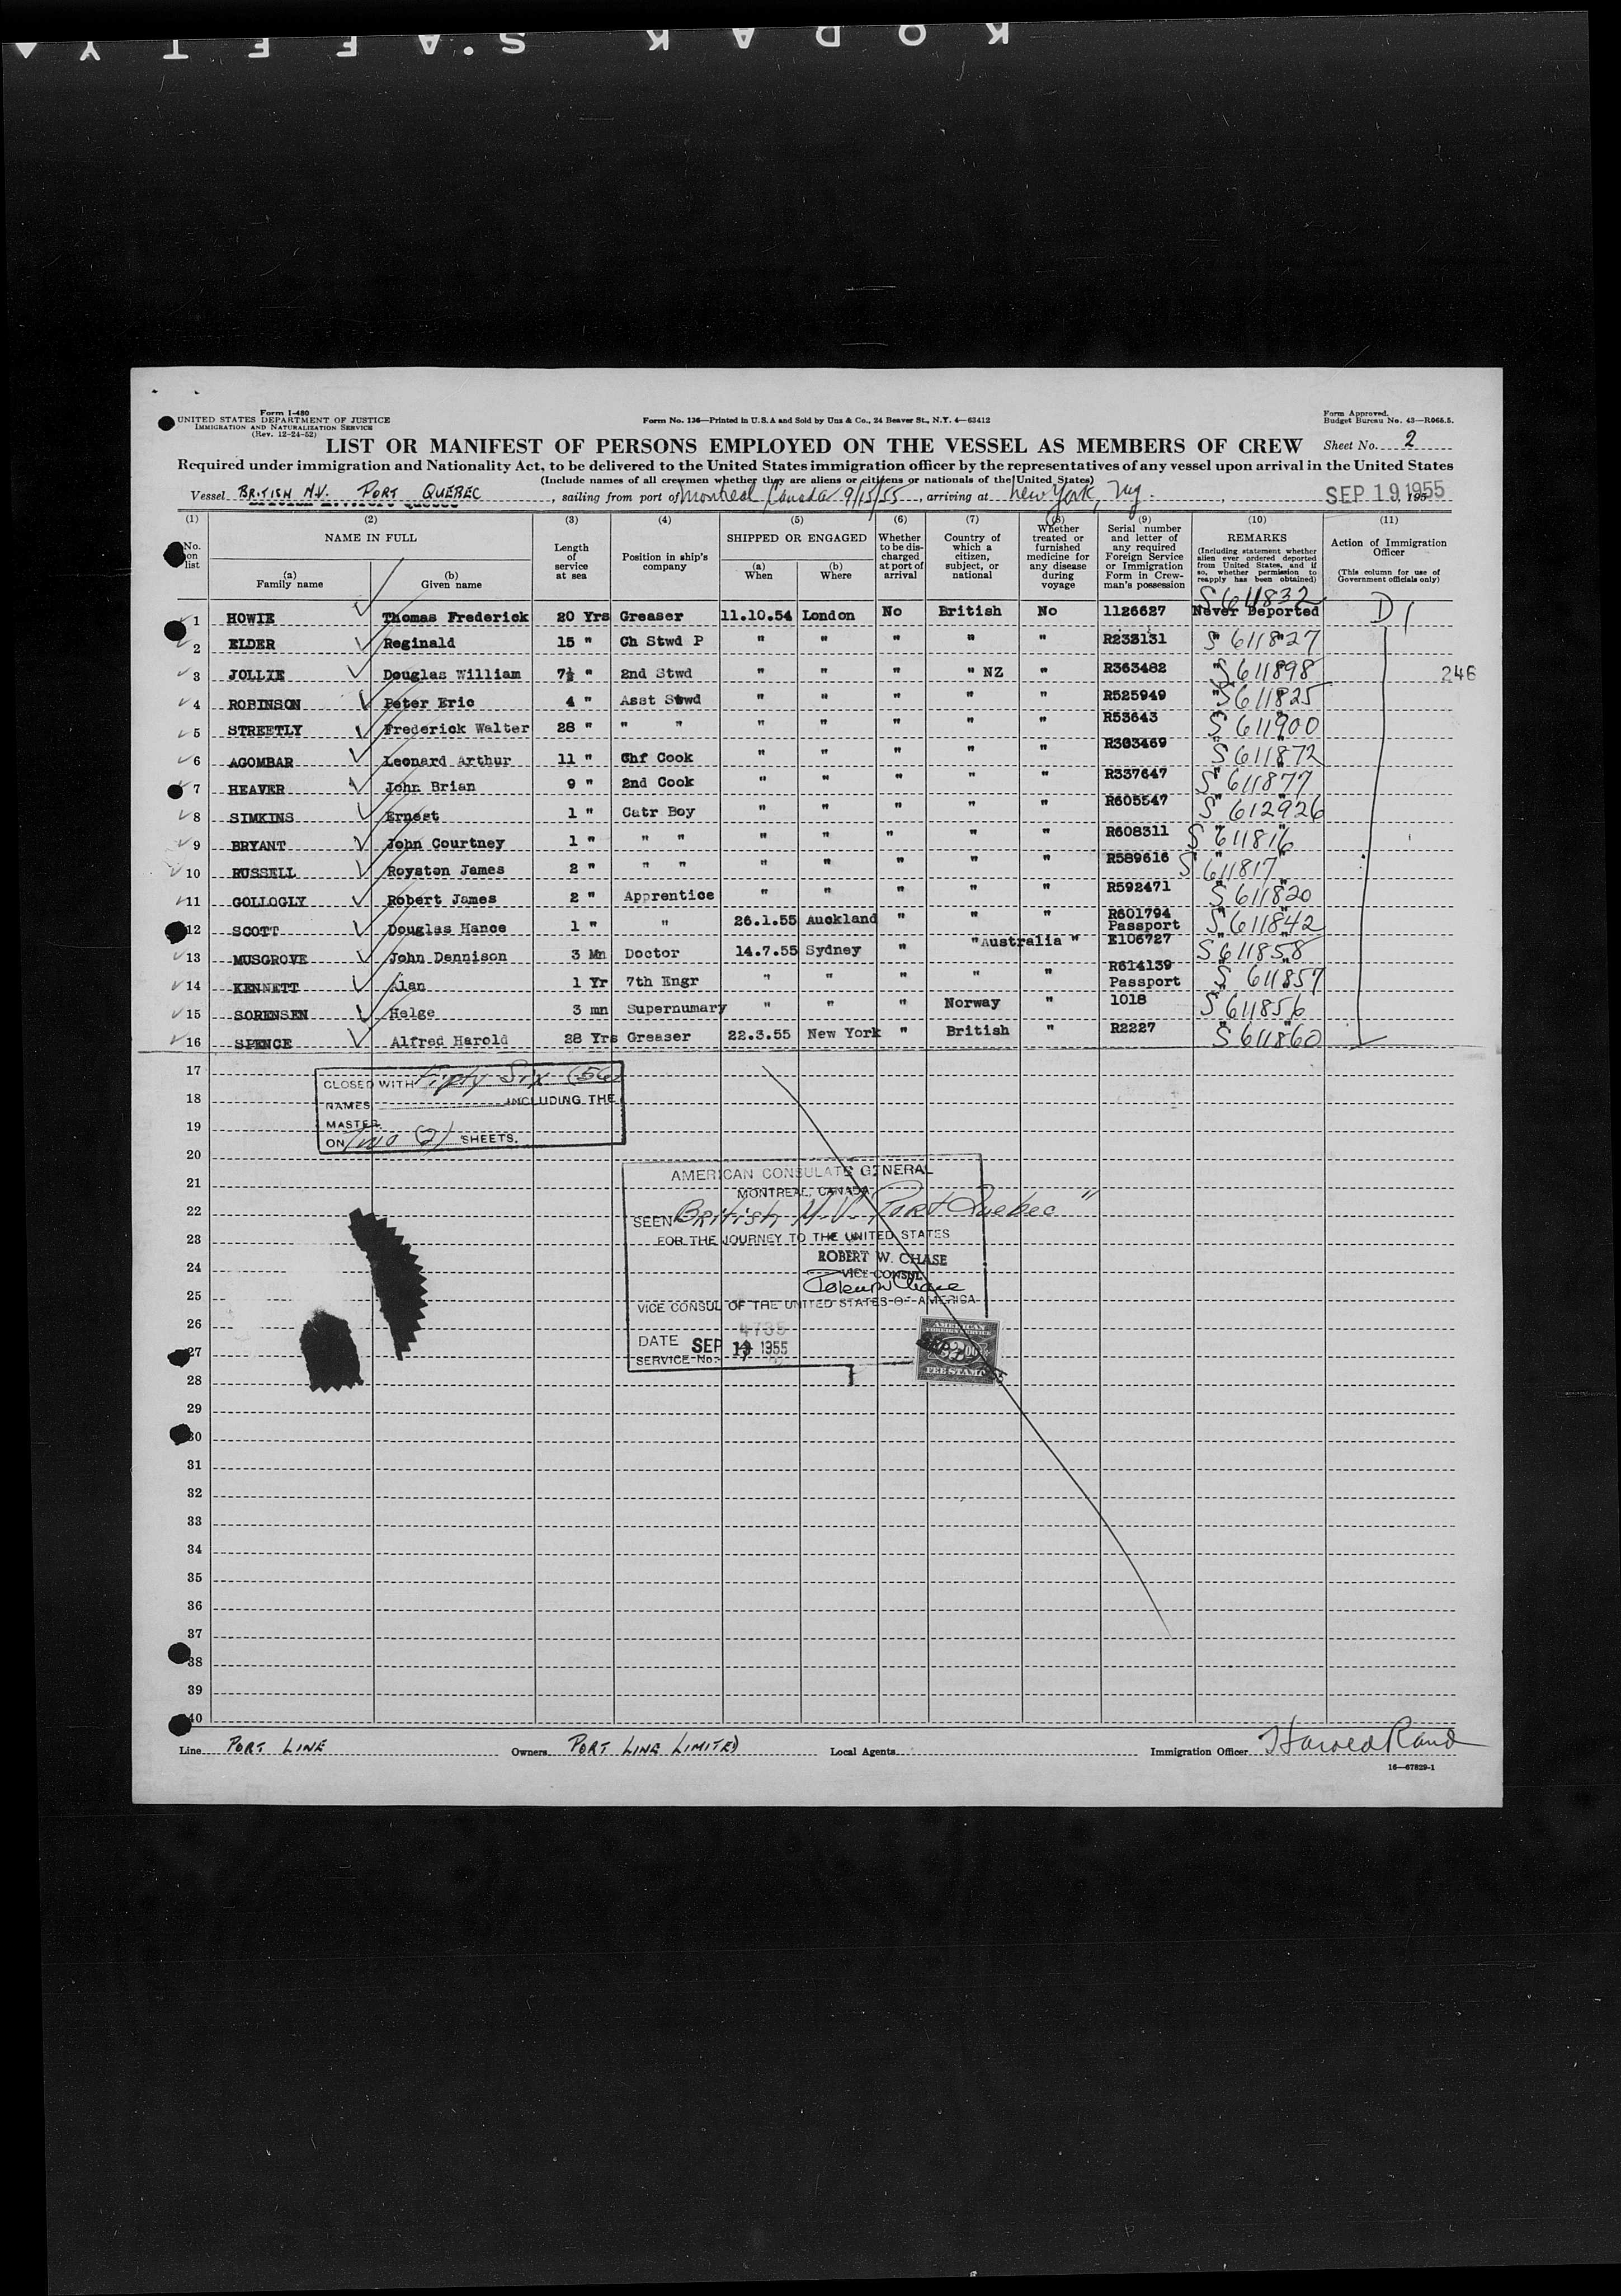 KODAK S.AFETY
Form I-480
UNITED STATES DEPARTMENT OF JUSTICE
IMMIGRATION AND NATURALIZATION SERVICE
(Rev. 12-24-52)
Form No. 136—Printed in U.S.A and Sold by Unz & Co., 24 Beaver St., N.Y. 4—63412
Form Approved.
Budget Bureau No. 43—R065.5.
LIST OR MANIFEST OF PERSONS EMPLOYED ON THE VESSEL AS MEMBERS OF CREW Sheet No. 2
Required under immigration and Nationality Act, to be delivered to the United States immigration officer by the representatives of any vessel upon arrival in the United States
(Include names of all crewmen whether they are aliens or citizens or nationals of the United States)
Vessel BRITISH M.V. PORT QUEBEC, sailing from port of Montreal Canada 9/15/55, arriving at New York, NY. SEP 19 1955
(1) (2) (3) (4) (5) (6) (7) (8) (9) (10) (11)
No. on list
NAME IN FULL
(a) Family name
(b) Given name
Length of service at sea
Position in ship's company
SHIPPED OR ENGAGED
(a) When
(b) Where
Whether to be discharged at port of arrival
Country of which a citizen, subject, or national
Whether treated or furnished medicine for any disease during voyage
Serial number and letter of any required Foreign Service or Immigration Form in Crewman's possession
REMARKS
(Including statement whether alien ever ordered deported from United States, and if so, whether permission to reapply has been obtained)
Action of Immigration Officer
(This column for use of Government officials only)
S 611832
1 HOWIE Thomas Frederick 20 Yrs Greaser 11.10.54 London No British No 1126627 Never Deported D1
2 ELDER Reginald 15 " Ch Stwd P " " " " " R233131 S 611827
3 JOLLIE Douglas William 7½ " 2nd Stwd " " " " NZ " R363482 S 611898 246
4 ROBINSON Peter Eric 4 " Asst Stwd " " " " " R525949 S 611825
5 STREETLY Frederick Walter 28 " " " " " " " " R53643 S 611900
6 AGOMBAR Leonard Arthur 11 " Chf Cook " " " " " R303469 S 611872
7 HEAVER John Brian 9 " 2nd Cook " " " " " R337647 S 611877
8 SIMKINS Ernest 1 " Catr Boy " " " " " R605547 S 612926
9 BRYANT John Courtney 1 " " " " " " " " R608311 S 611816
10 RUSSELL Royston James 2 " " " " " " " " R589616 S 611817
11 GOLLOGLY Robert James 2 " Apprentice " " " " " R592471 S 611820
12 SCOTT Douglas Hance 1 " " 26.1.55 Auckland " " " R601794 S 611842
13 MUSGROVE John Dennison 3 Mn Doctor 14.7.55 Sydney " " Australia " Passport E106727 S 611858
14 KENNETT Alan 1 Yr 7th Engr " " " " " R614139 S 611857
15 SORENSEN Helge 3 mn Supernumary " " " Norway " Passport 1018 S 611856
16 SPENCE Alfred Harold 28 Yrs Greaser 22.3.55 New York " British " R2227 S 611860
17
18
19
20
21
22
23
24
25
26
27
28
29
30
31
32
33
34
35
36
37
38
39
40
CLOSED WITH Fifty Six (56)
NAMES INCLUDING THE
MASTER
ON Two (2) SHEETS.
AMERICAN CONSULATE GENERAL
MONTREAL, CANADA
SEEN British M.V. "Port Quebec"
FOR THE JOURNEY TO THE UNITED STATES
ROBERT W. CHASE
VICE CONSUL
Robert W Chase
VICE CONSUL OF THE UNITED STATES OF AMERICA
4735
DATE SEP 13 1955
SERVICE No.
AMERICAN
FOREIGN SERVICE
FEE STAMP
Line PORT LINE Owners PORT LINE LIMITED Local Agents Immigration Officer Harold Rand
16—67829-1